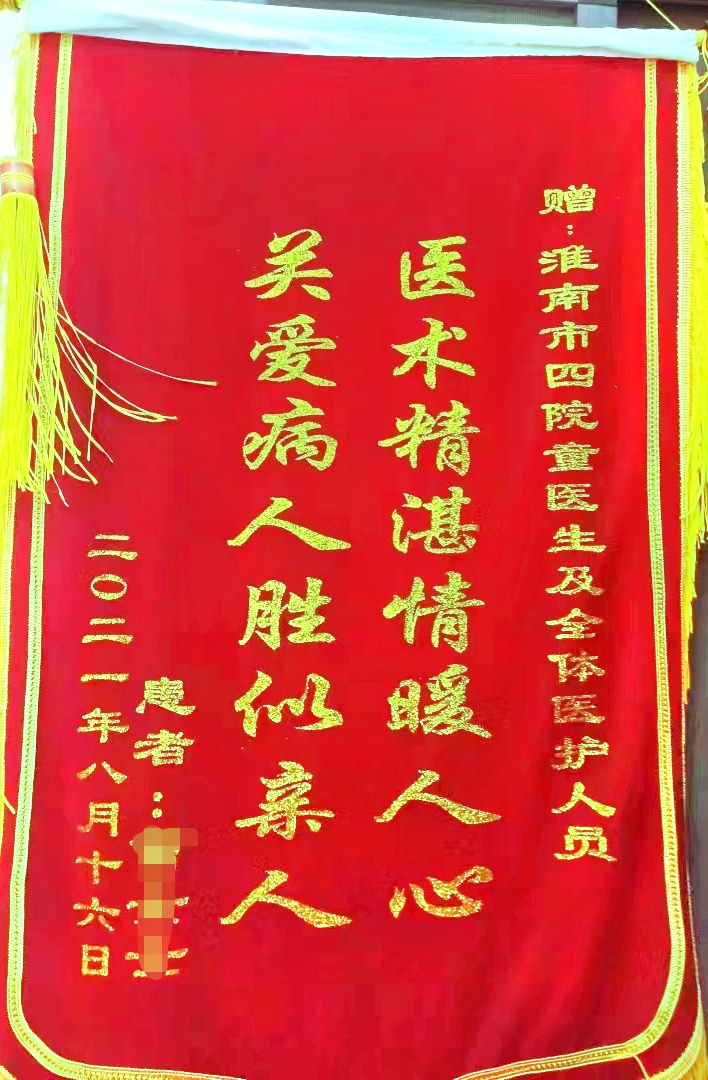 赠：淮南市四院童医生及全体医护人员
医术精湛情暖人心
关爱病人胜似亲人
患者：
二〇二一年八月十六日